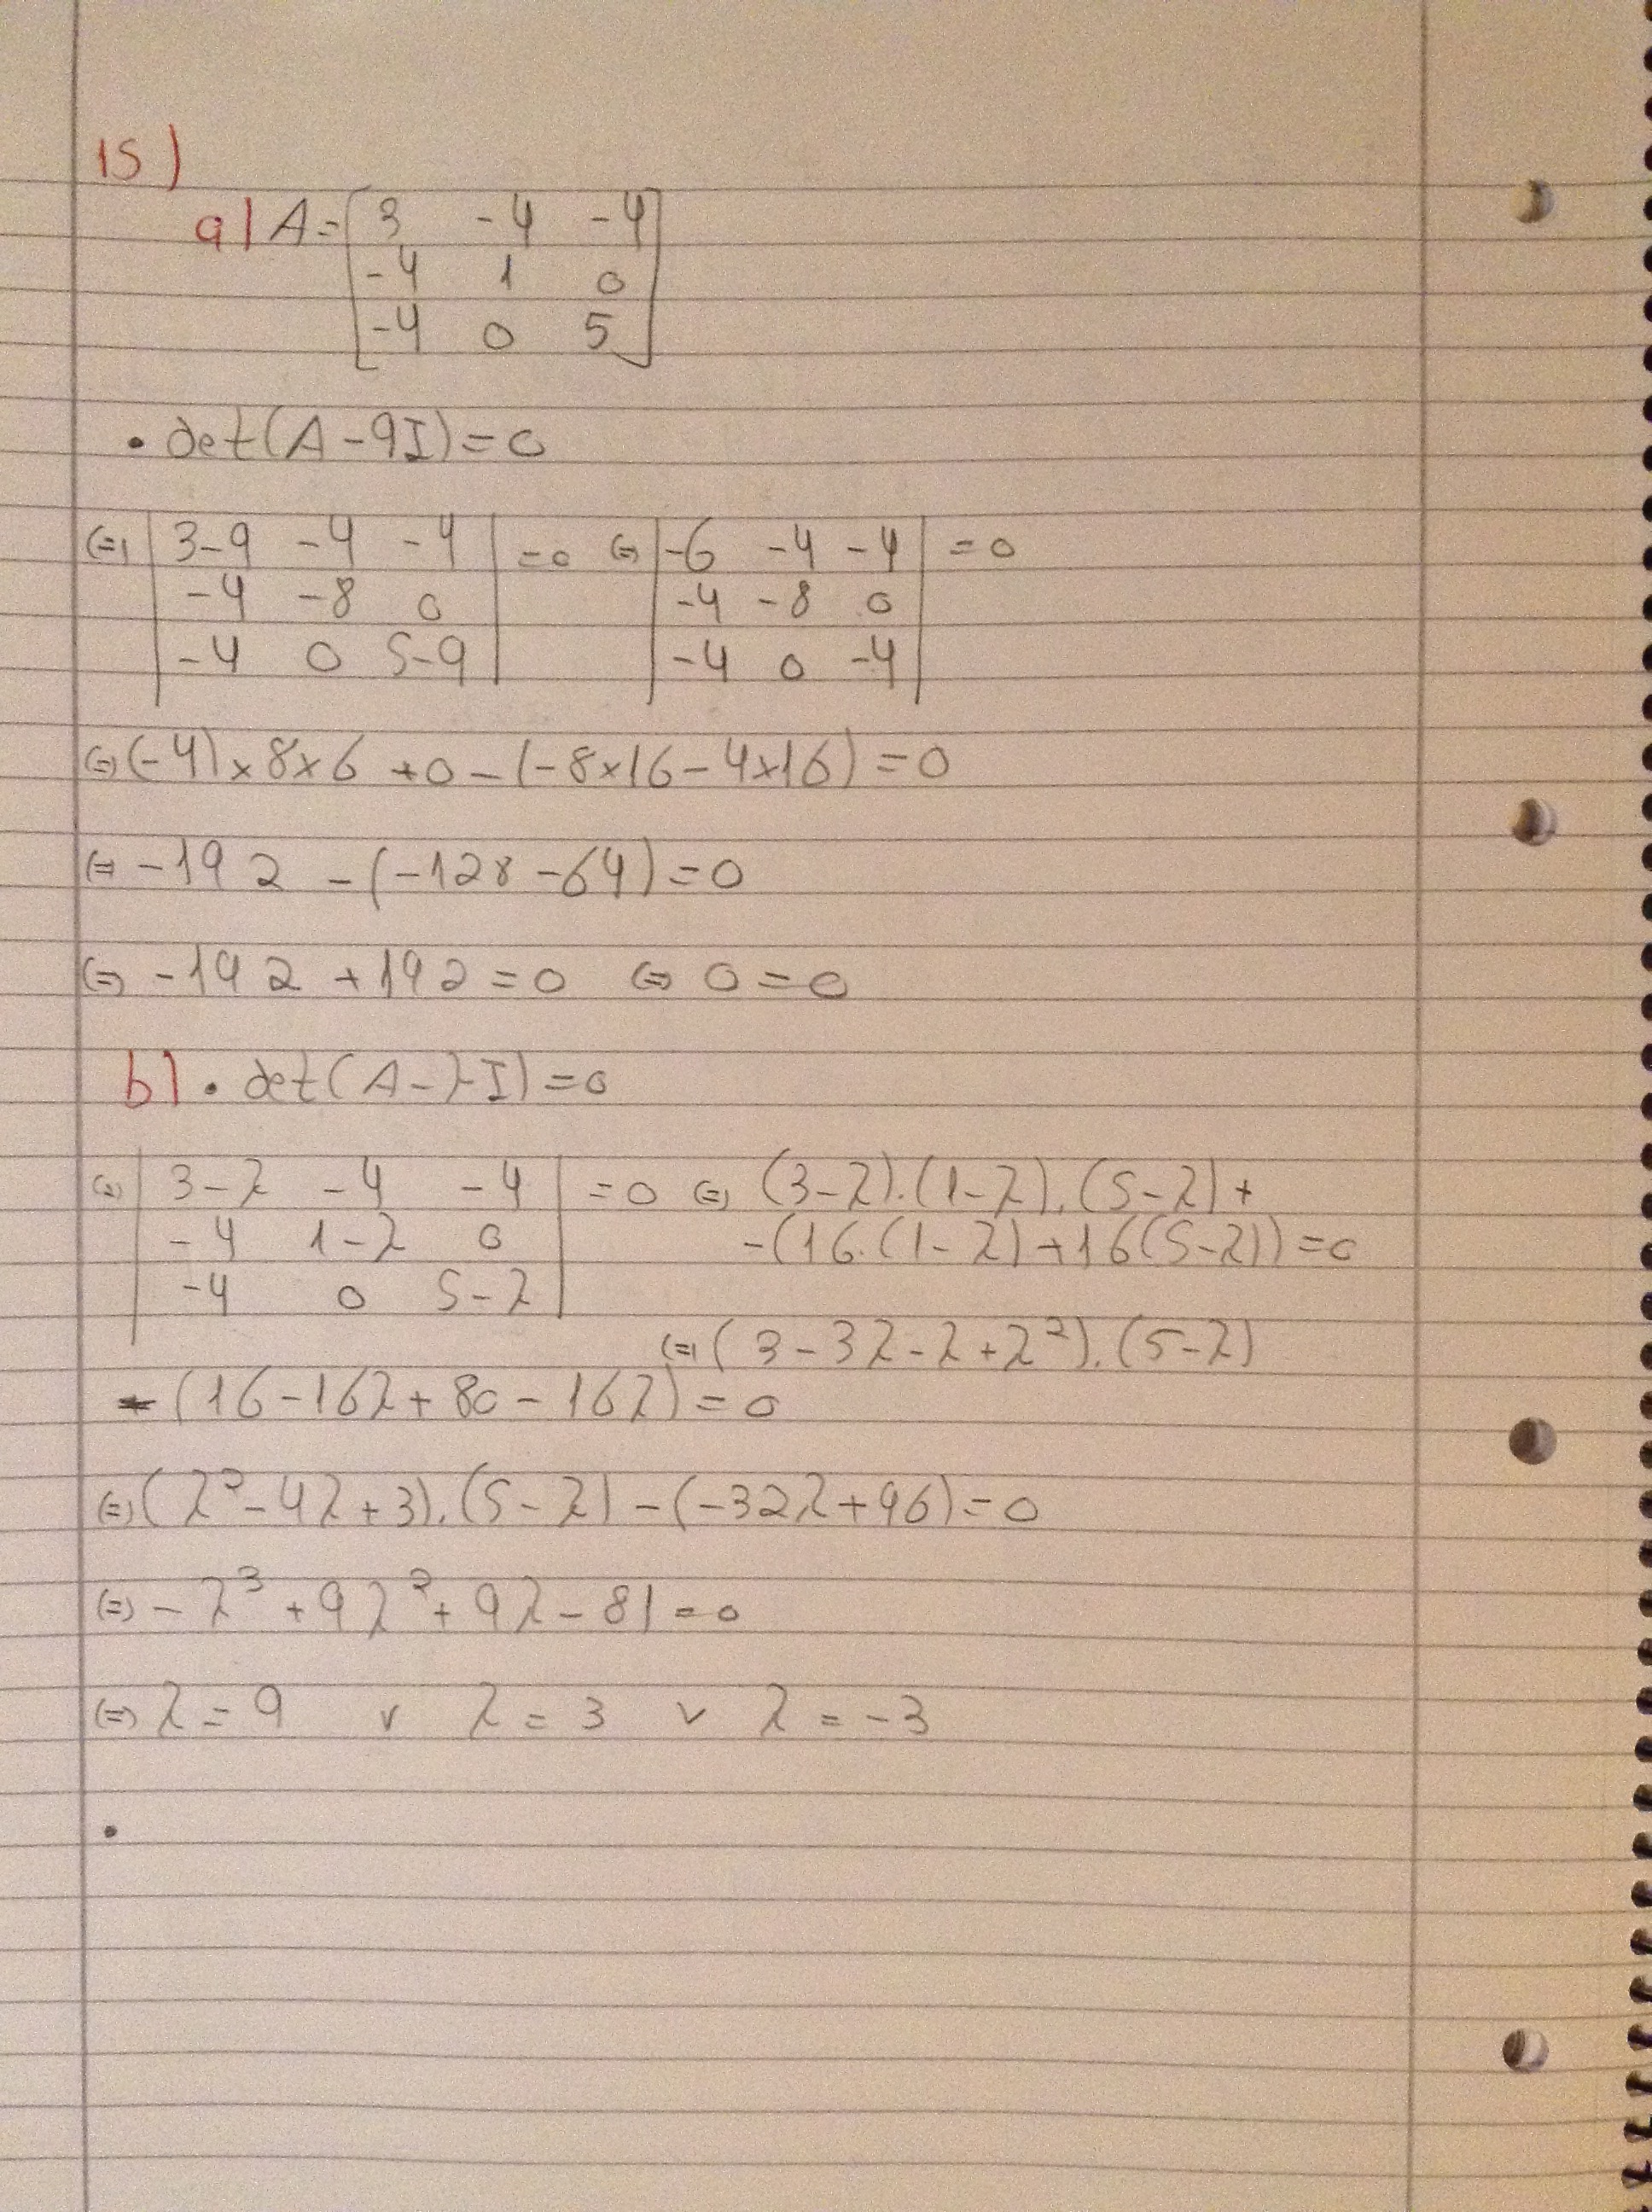 15)
a) A = [ 3 -4 -4
-4 1 0
-4 0 5 ]
• det(A - 9I) = 0
(=) | 3-9 -4 -4 | = 0 (=) | -6 -4 -4 | = 0
-4 -8 0 -4 -8 0
-4 0 5-9 -4 0 -4
(=) (-4) × 8 × 6 + 0 - (-8×16 - 4×16) = 0
(=) -192 - (-128 - 64) = 0
(=) -192 + 192 = 0 (=) 0 = 0
b) • det(A - λI) = 0
(=) | 3-λ -4 -4 | = 0 (=) (3-λ).(1-λ).(5-λ) +
-4 1-λ 0 -(16.(1-λ) + 16(5-λ)) = 0
-4 0 5-λ
(=) (3 - 3λ - λ + λ²).(5-λ)
- (16 - 16λ + 80 - 16λ) = 0
(=) (λ² - 4λ + 3).(5 - λ) - (-32λ + 96) = 0
(=) -λ³ + 9λ² + 9λ - 81 = 0
(=) λ = 9 ∨ λ = 3 ∨ λ = -3
•